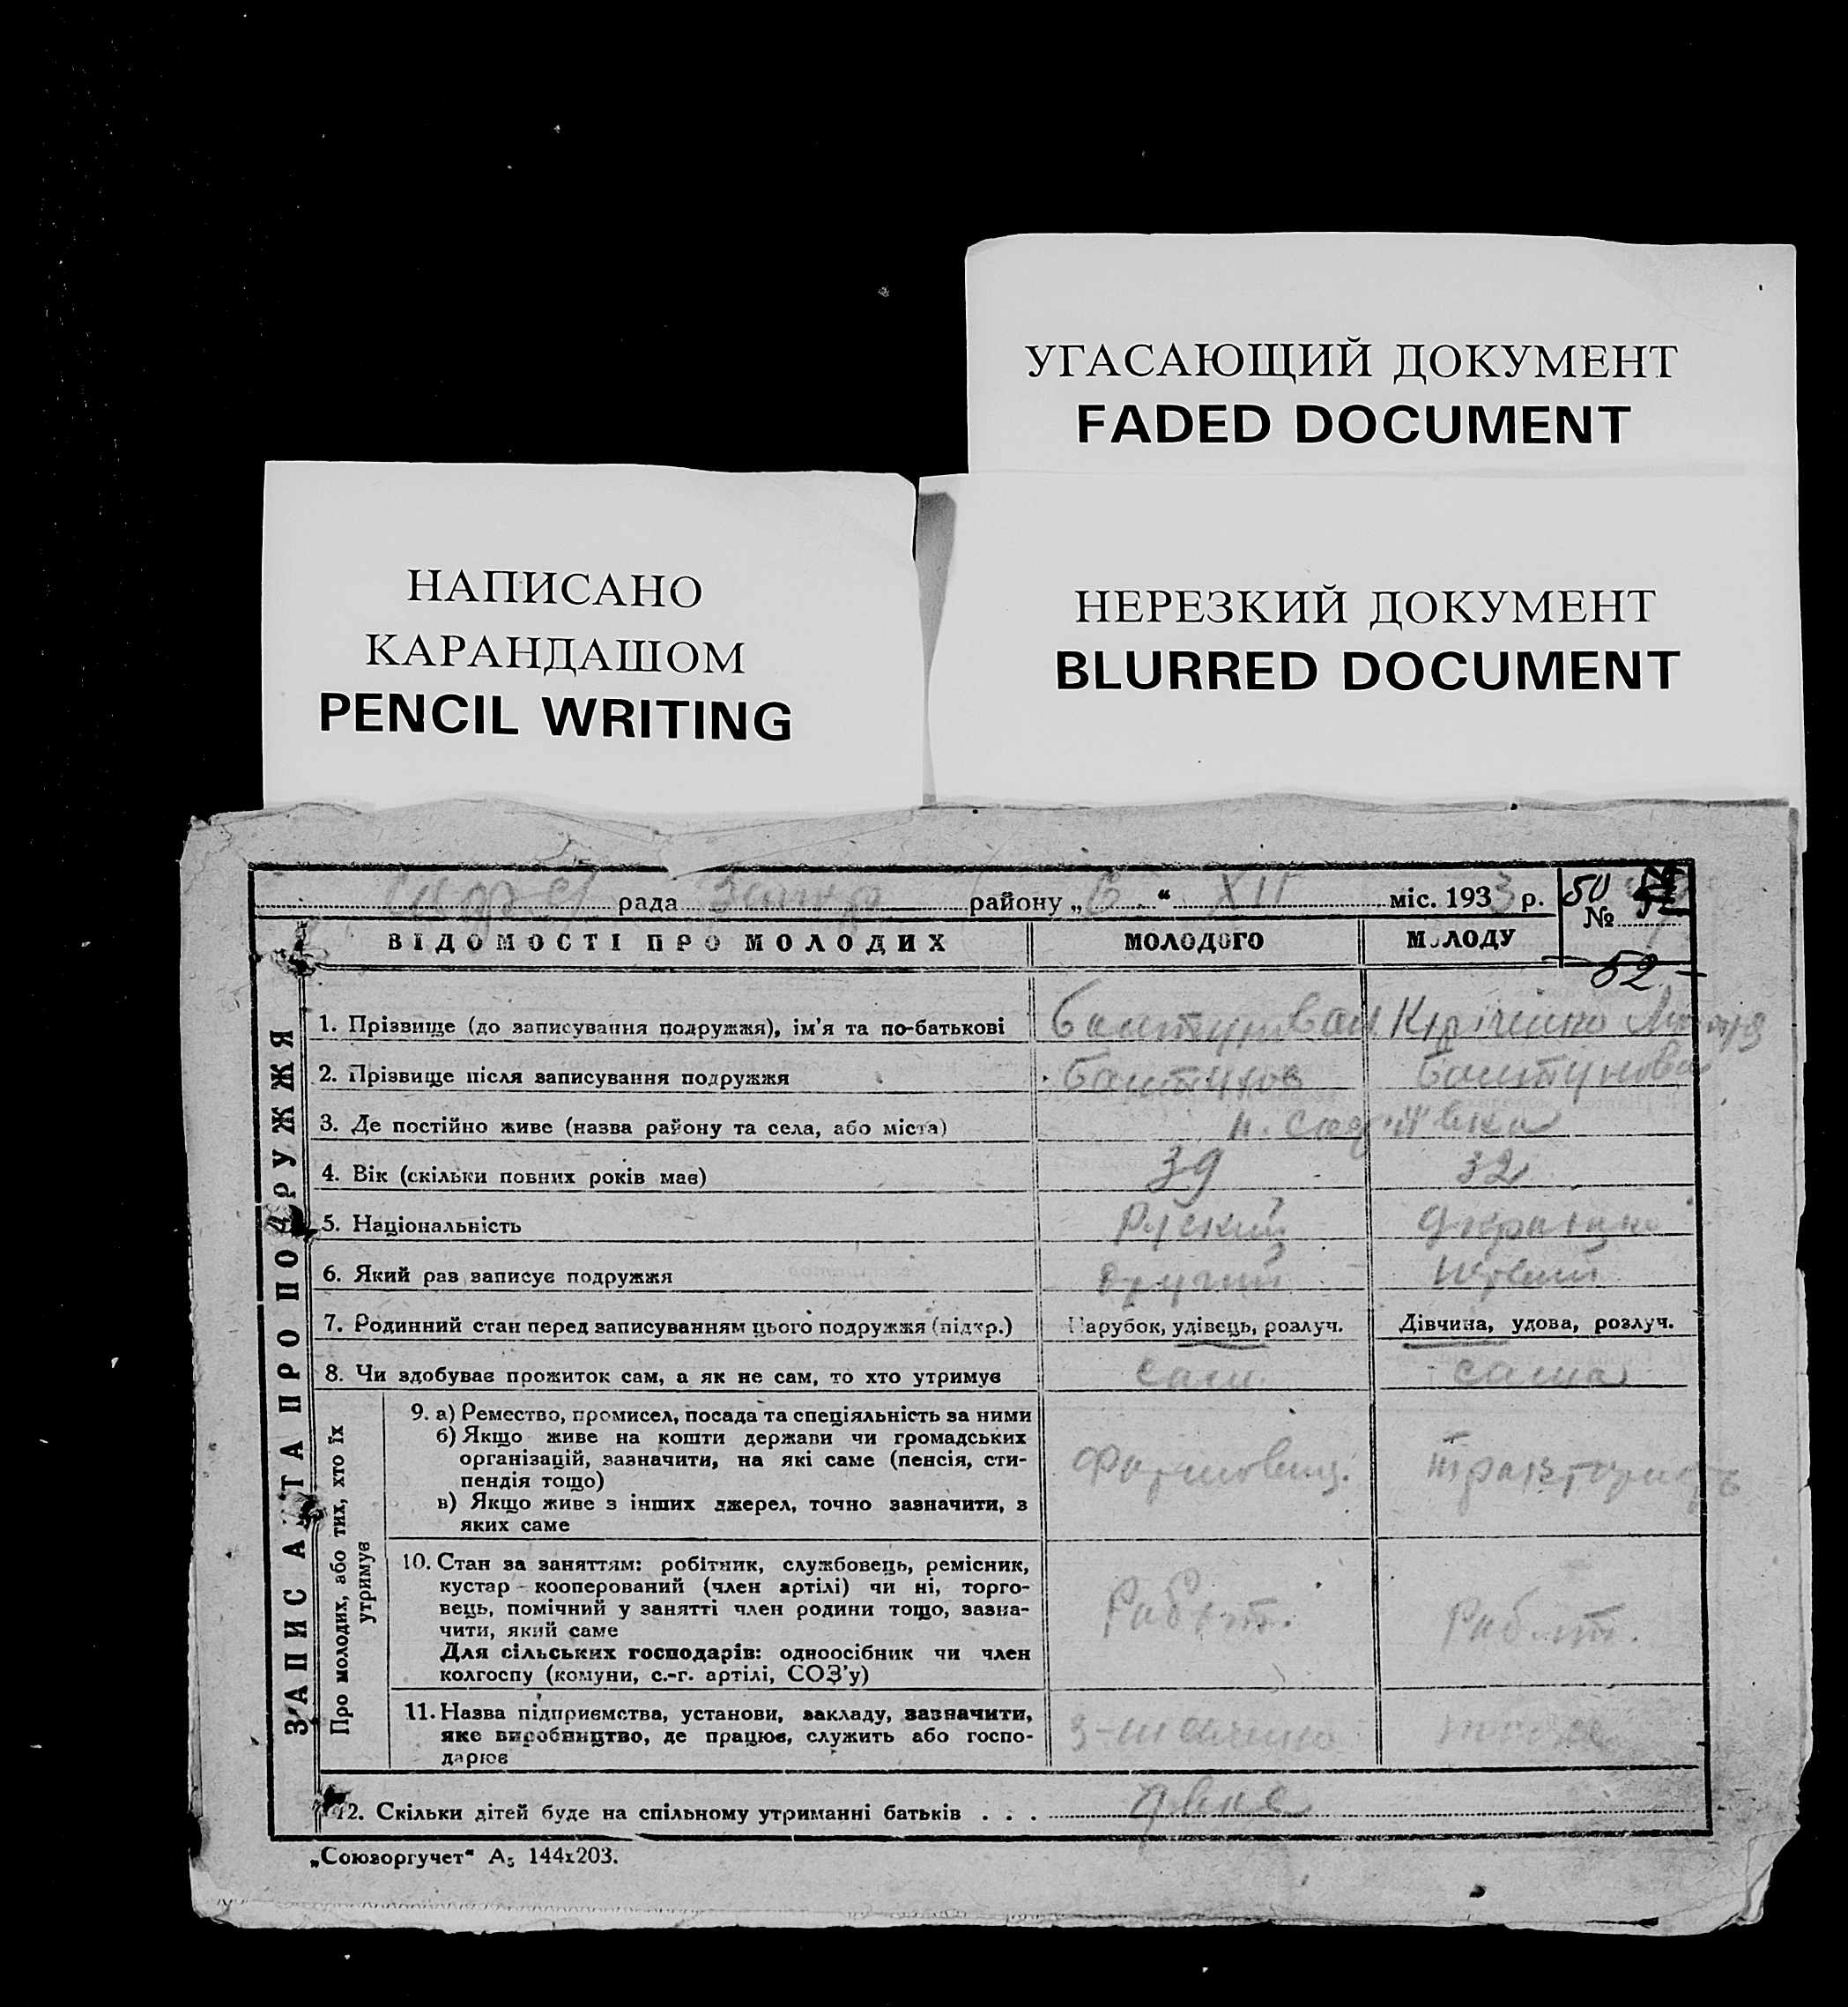 УГАСАЮЩИЙ ДОКУМЕНТ
FADED DOCUMENT
НАПИСАНО
КАРАНДАШОМ
PENCIL WRITING
НЕРЕЗКИЙ ДОКУМЕНТ
BLURRED DOCUMENT
рада района „6“ XII міс. 1933 р.
50
№
52
ВІДОМОСТІ ПРО МОЛОДИХ МОЛОДОГО МОЛОДУ
ЗАПИС АКТА ПРО ПОДРУЖЖЯ
1. Прізвище (до записування подружжя), ім'я та по-батькові
2. Прізвище після записування подружжя Баштунов Баштунова
3. Де постійно живе (назва району та села, або міста)
4. Вік (скільки повних років має) 39 32
5. Національність Руский
6. Який раз записує подружжя другий
7. Родинний стан перед записуванням цього подружжя (підкр.) Парубок, удівець, розлуч. Дівчина, удова, розлуч.
8. Чи здобуває прожиток сам, а як не сам, то хто утримує сам сама
Про молодих, або тих, хто їх
утримує
9. а) Ремество, промисел, посада та спеціяльність за ними
б) Якщо живе на кошти держави чи громадських
організацій, зазначити, на які саме (пенсія, сти-
пендія тощо)
в) Якщо живе з інших джерел, точно зазначити, з
яких саме
10. Стан за заняттям: робітник, службовець, ремісник,
кустар-кооперований (член артілі) чи ні, торго-
вець, помічний у занятті член родини тощо, зазна-
чити, який саме
Для сільських господарів: одноосібник чи член
колгоспу (комуни, с.-г. артілі, СОЗ'у)
Работ. Работ.
11. Назва підприємства, установи, закладу, зазначити,
яке виробництво, де працює, служить або госпо-
дарює
12. Скільки дітей буде на спільному утриманні батьків . . .
„Союзоргучет“ А5 144х203.